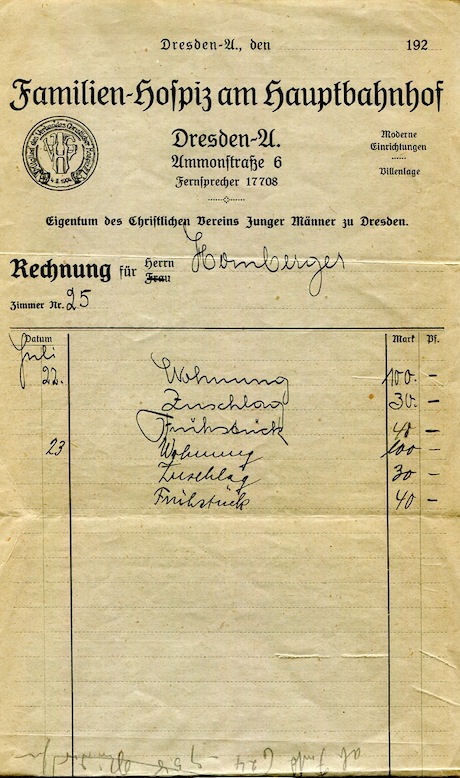 Dresden-A., den 192
Familien-Hospiz am Hauptbahnhof
Dresden-A.
Ammonstraße 6
Fernsprecher 17708
Moderne
Einrichtungen
Villenlage
Eigentum des Christlichen Vereins Junger Männer zu Dresden.
Rechnung für Herrn Frau Homberger
Zimmer Nr. 25
Datum Mark Pf.
Juli
22. Wohnung 100. –
Zuschlag 30. –
Frühstück 40 –
23 Wohnung 100 –
Zuschlag 30 –
Frühstück 40 –